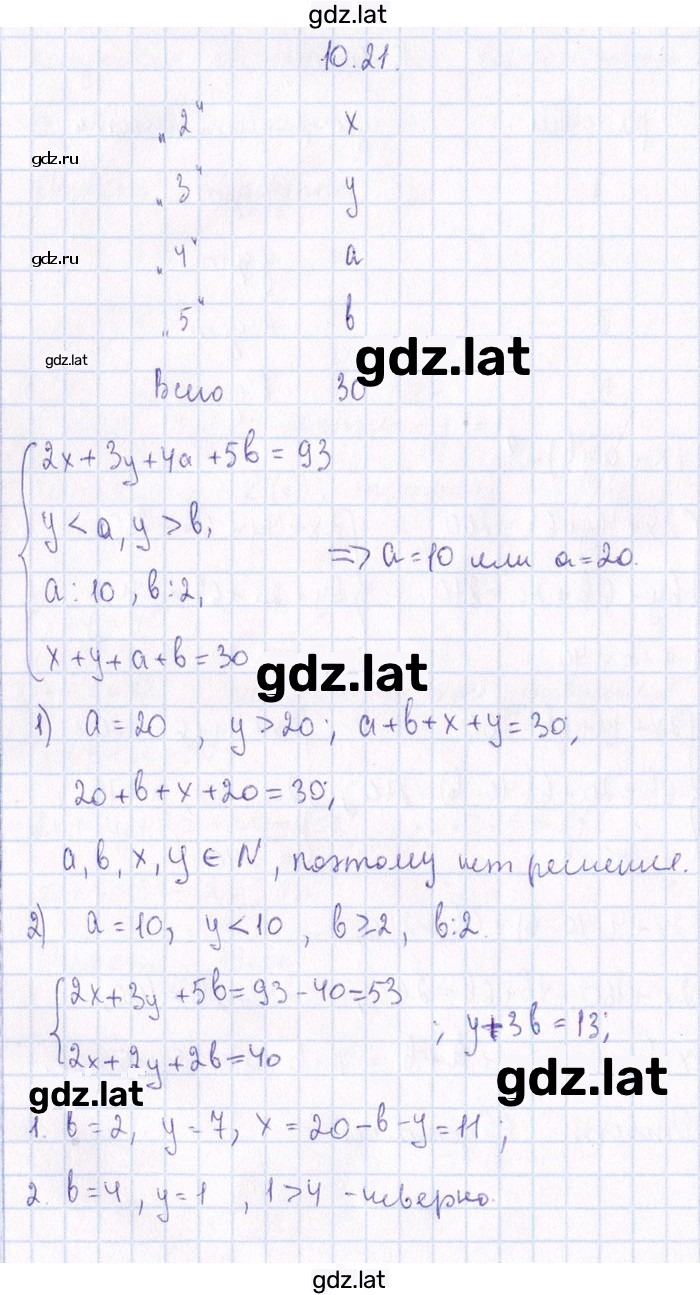 gdz.lat
10.21.
„2“ x
gdz.ru
„3“ y
„4“ a
gdz.ru
„5“ b
gdz.lat
gdz.lat
Всего 30
2x + 3y + 4a + 5b = 93
y < a, y > b,
=> a = 10 или a = 20.
a : 10, b : 2,
x + y + a + b = 30
gdz.lat
1) a = 20, y > 20; a + b + x + y = 30,
20 + b + x + 20 = 30;
a, b, x, y ∈ N, поэтому нет решения.
2) a = 10, y < 10, b ≥ 2, b : 2.
2x + 3y + 5b = 93 - 40 = 53
; y + 3b = 13;
2x + 2y + 2b = 40
gdz.lat
gdz.lat
1. b = 2, y = 7, x = 20 - b - y = 11;
2. b = 4, y = 1, 1 > 4 - неверно.
gdz.lat